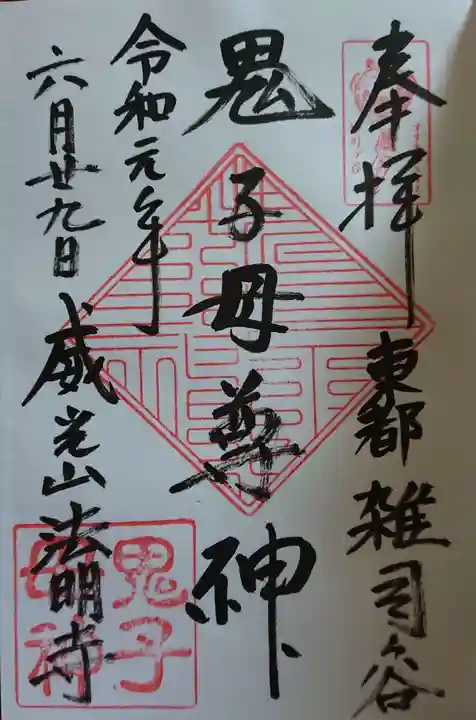 奉拝
東都 雑司谷
鬼子母尊神
令和元年
六月廿九日
威光山 法明寺
鬼子
母神